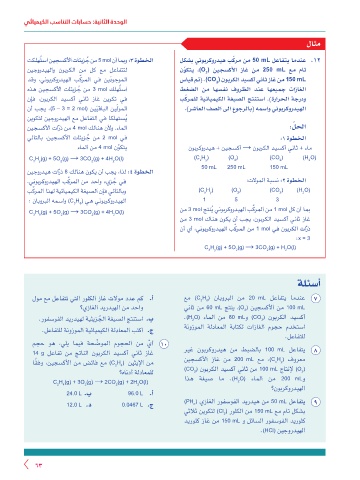 الوحدة الثانية: حسابات التناسب الكيميائي
مثال
١٢. عندما يتفاعل 50 mL من مركب هيدروكربوني بشكل
تام مع 250 mL من غاز الأكسجين (O₂)، يتكوّن
150 mL من غاز ثاني أكسيد الكربون (CO₂). (تم قياس
الغازات جميعها عند الظروف نفسها من الضغط
ودرجة الحرارة). استنتج الصيغة الكيميائية للمركب
الهيدروكربوني واسمه (بالرجوع إلى الصف العاشر).
الحل:
الخطوة ١:
ماء + ثاني أكسيد الكربون ⟶ أكسجين + هيدروكربون
(CₓHᵧ) (O₂) (CO₂) (H₂O)
50 mL 250 mL 150 mL
الخطوة ٢: نسبة المولات:
(CₓHᵧ) (O₂) (CO₂) (H₂O)
1 5 3
بما أن كل 1 mol من المركّب الهيدروكربوني يُنتج 3 mol من
غاز ثاني أكسيد الكربون. يجب أن يكون هناك 3 mol من
ذرّات الكربون في 1 mol من المركّب الهيدروكربوني. أي أن
x = 3:
C₃Hᵧ(g) + 5O₂(g) ⟶ 3CO₂(g) + H₂O(l)
الخطوة ٣: وبما أن 5 mol من جُزيئات الأكسجين استُهلكت
لتتفاعل مع كل من الكربون والهيدروجين
الموجودين في المركّب الهيدروكربوني، وقد
استُهلك 3 mol من جُزيئات الأكسجين هذه
في تكوين غاز ثاني أكسيد الكربون، فإن
المولَين البقيّتين (5 – 3 = 2 mol)، يجب أن
يُستهلكا في التفاعل مع الهيدروجين لتكوين
الماء. ولأن هنالك 4 mol من ذرّات الأكسجين
في 2 mol من جُزيئات الأكسجين، بالتالي
يتكوّن 4 mol من الماء.
C₃Hᵧ(g) + 5O₂(g) ⟶ 3CO₂(g) + 4H₂O(l)
الخطوة ٤: لذا، يجب أن يكون هنالك 8 ذرّات هيدروجين
في جُزيء واحد من المركّب الهيدروكربوني.
وبالتالي فإن الصيغة الكيميائية لهذا المركّب
الهيدروكربوني هي (C₃H₈) واسمه البروبان:
C₃H₈(g) + 5O₂(g) ⟶ 3CO₂(g) + 4H₂O(l)
أسئلة
٧ عندما يتفاعل 20 mL من البروبان (C₃H₈) مع
100 mL من الأكسجين (O₂)، ينتج 60 mL من ثاني
أكسيد الكربون (CO₂) و80 mL من الماء (H₂O).
استخدم حجوم الغازات لكتابة المعادلة الموزونة
للتفاعل.
٨ يتفاعل 100 mL بالضبط من هيدروكربون غير
معروف (CₓHᵧ)، مع 200 mL من غاز الأكسجين
(O₂) لإنتاج 100 mL من ثاني أكسيد الكربون (CO₂)
و200 mL من الماء (H₂O). ما صيغة هذا
الهيدروكربون؟
٩ يتفاعل 50 mL من هيدريد الفوسفور الغازي (PHₓ)
بشكل تام مع 150 mL من الكلور (Cl₂) لتكوين ثلاثي
كلوريد الفوسفور السائل و 150 mL من غاز كلوريد
الهيدروجين (HCl).
أ. كم عدد مولات غاز الكلور التي تتفاعل مع مول
واحد من الهيدريد الغازي؟
ب. استنتج الصيغة الجُزيئية لهيدريد الفوسفور.
ج. اكتب المعادلة الكيميائية الموزونة للتفاعل.
١٠ أيّ من الحجوم الموضّحة فيما يلي، هو حجم
غاز ثاني أكسيد الكربون الناتج من تفاعل 14 g
من الإيثين (C₂H₄) مع فائض من الأكسجين، وفقًا
للمعادلة أدناه؟
C₂H₄(g) + 3O₂(g) ⟶ 2CO₂(g) + 2H₂O(l)
أ. 96.0 L ب. 24.0 L
ج. 0.0467 L د. 12.0 L
٦٣